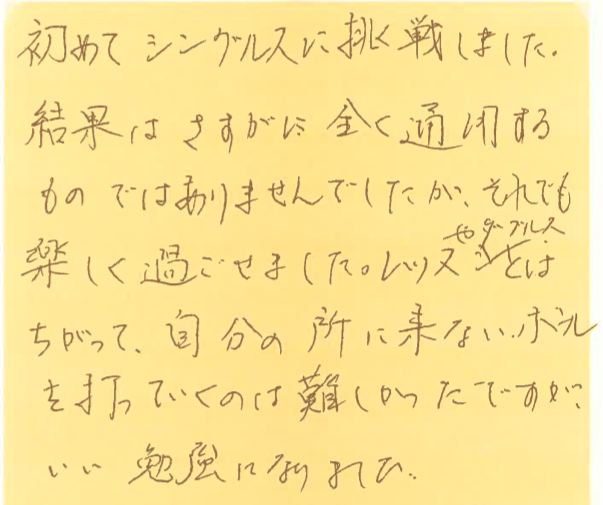 初めてシングルスに挑戦しました。
結果はさすがに全く通用する
ものではありませんでしたが、それでも
楽しく過ごせました。レッスンやダブルスとは
ちがって、自分の所に来ないボール
を打っていくのは難しかったですが、
いい勉強になりました。